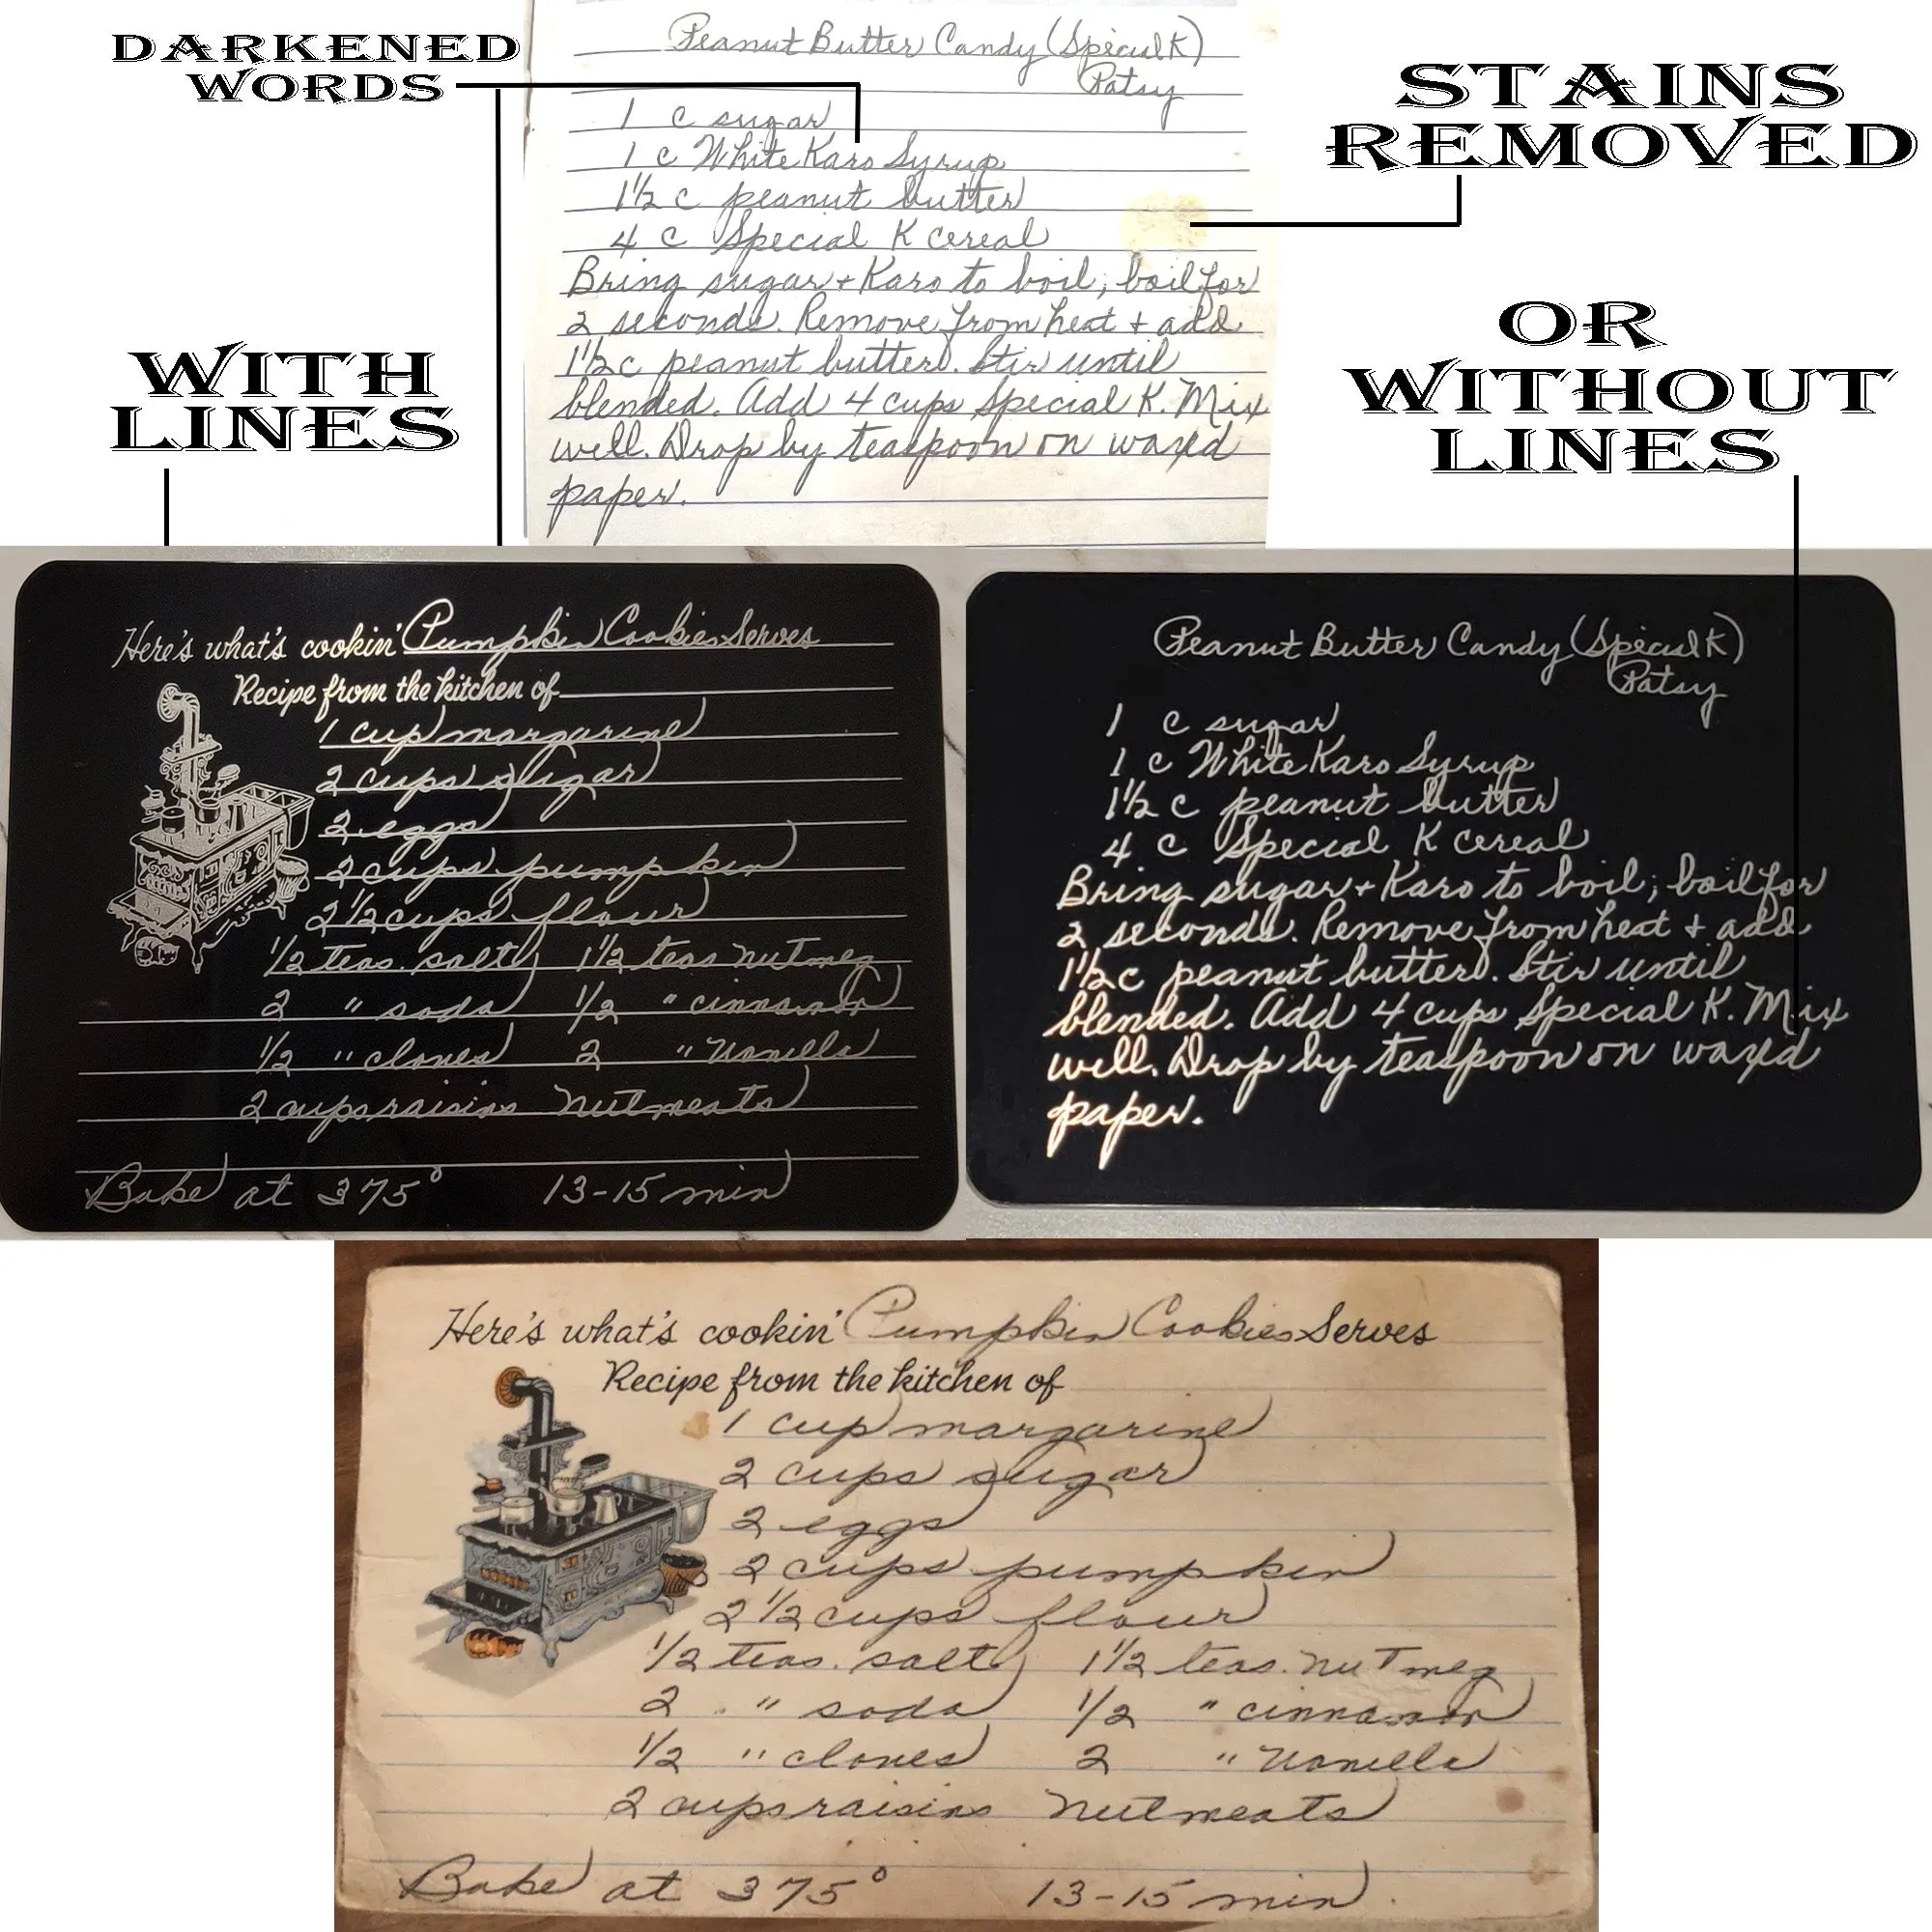 DARKENED
WORDS
STAINS
REMOVED
Peanut Butter Candy (Special K)
Patsy
1 c sugar
1 c White Karo Syrup
1½ c peanut butter
4 c Special K cereal
Bring sugar + Karo to boil; boil for
2 seconds. Remove from heat + add
1½ c peanut butter. Stir until
blended. Add 4 cups Special K. Mix
well. Drop by teaspoon on waxed
paper.
WITH
LINES
OR
WITHOUT
LINES
Here's what's cookin' Pumpkin Cookies Serves
Recipe from the kitchen of
1 cup margarine
2 cups sugar
2 eggs
2 cups pumpkin
2 1/2 cups flour
1/2 teas. salt 1 1/2 teas nutmeg
2 " soda 1/2 " cinnamon
1/2 " cloves 2 " Vanilla
2 cups raisins Nutmeats
Bake at 375° 13-15 min
Peanut Butter Candy (Special K)
Patsy
1 c sugar
1 c White Karo Syrup
1½ c peanut butter
4 c Special K cereal
Bring sugar + Karo to boil; boil for
2 seconds. Remove from heat + add
1½ c peanut butter. Stir until
blended. Add 4 cups Special K. Mix
well. Drop by teaspoon on waxed
paper.
Here's what's cookin' Pumpkin Cookies Serves
Recipe from the kitchen of
1 cup margarine
2 cups sugar
2 eggs
2 cups pumpkin
2 1/2 cups flour
1/2 teas. salt 1 1/2 teas. nutmeg
2 " soda 1/2 " cinnamon
1/2 " cloves 2 " Vanilla
2 cups raisins Nutmeats
Bake at 375° 13-15 min.